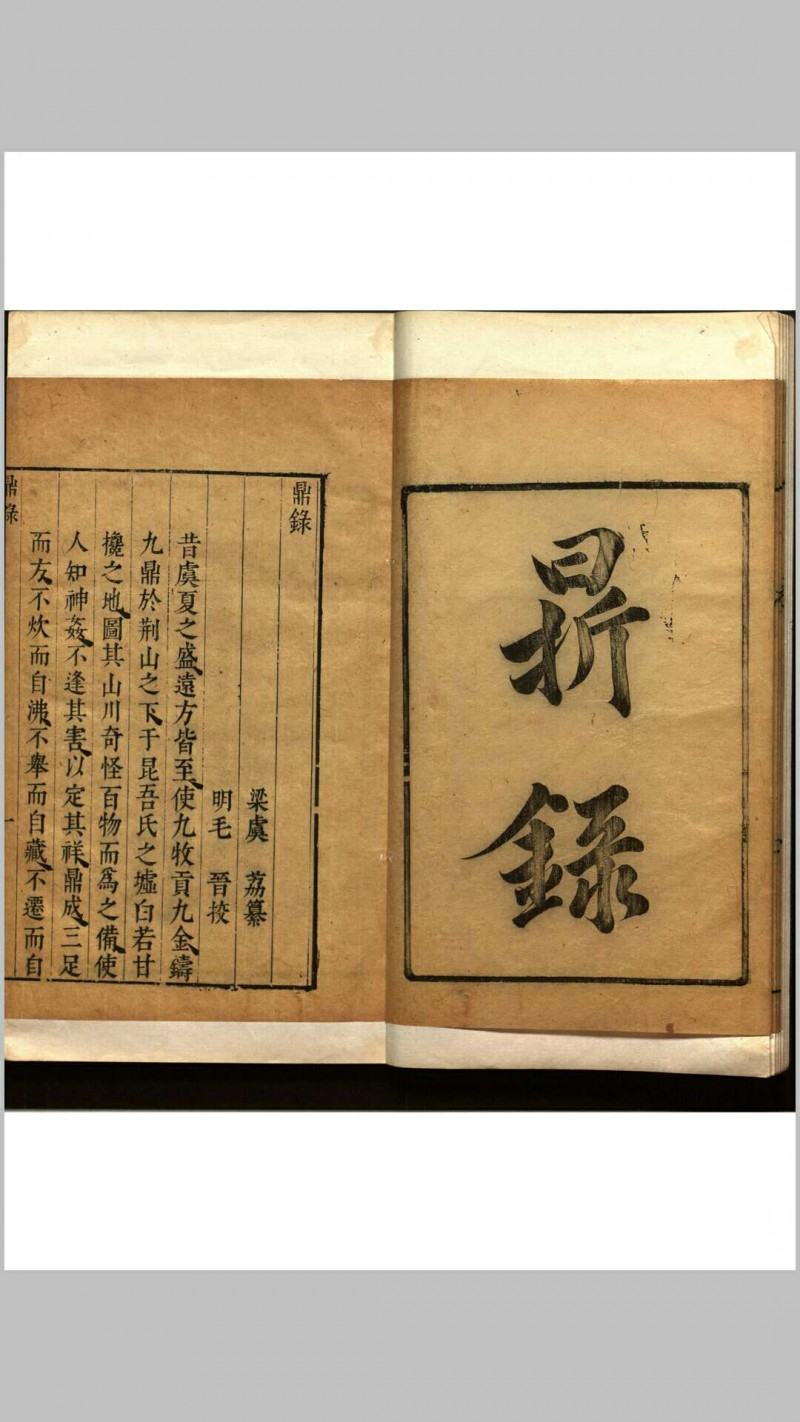 鼎錄
鼎錄
梁虞 荔纂
明毛 晉挍
昔虞夏之盛遠方皆至使九牧貢九金鑄
九鼎於荆山之下于昆吾氏之墟白若甘
攙之地圖其山川奇怪百物而爲之備使
人知神姦不逢其害以定其祥鼎成三足
而方不炊而自沸不舉而自藏不遷而自
鼎錄 一